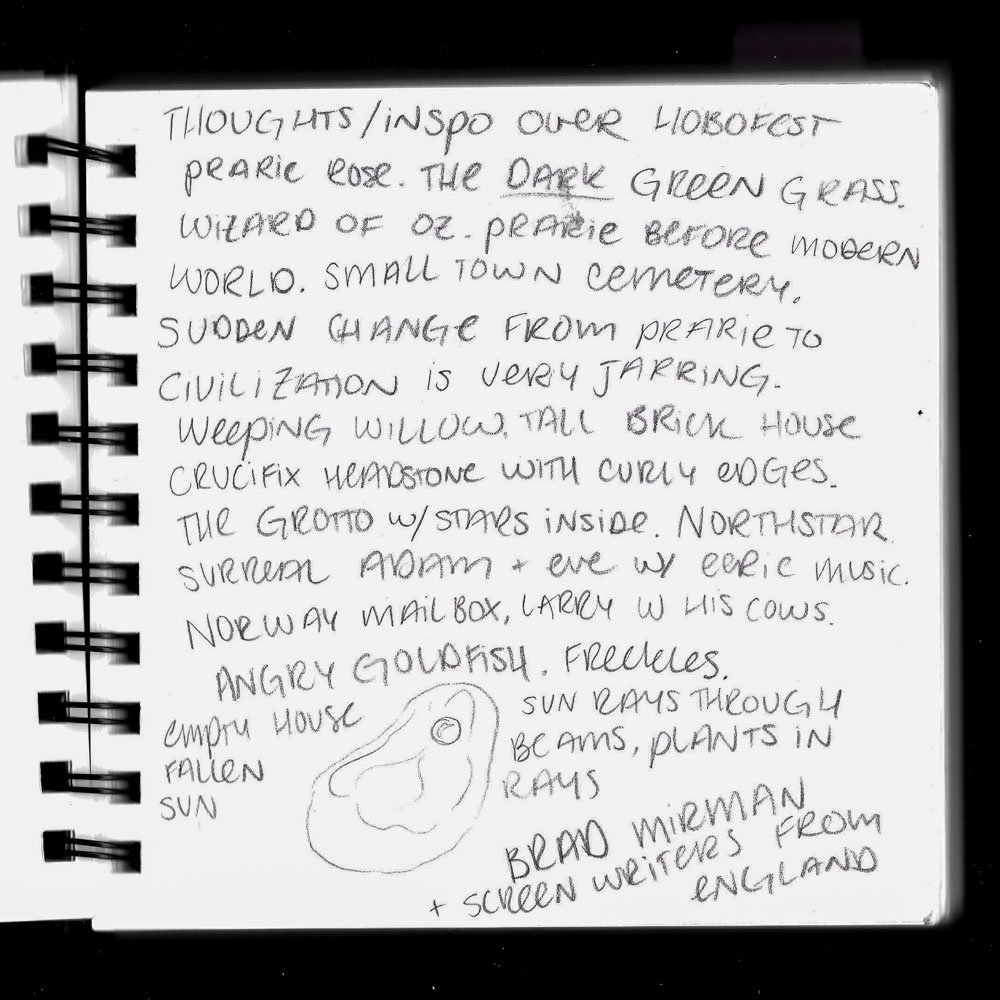 THOUGHTS/INSPO OVER HOBOFEST
PRARIE ROSE. THE DARK GREEN GRASS.
WIZARD OF OZ. PRARIE BEFORE MODERN
WORLD. SMALL TOWN CEMETERY.
SUDDEN CHANGE FROM PRARIE TO
CIVILIZATION IS VERY JARRING.
WEEPING WILLOW. TALL BRICK HOUSE
CRUCIFIX HEADSTONE WITH CURLY EDGES.
THE GROTTO W/ STARS INSIDE. NORTHSTAR
SURREAL ADAM + EVE W/ EERIE MUSIC.
NORWAY MAILBOX, LARRY W HIS COWS.
ANGRY GOLDFISH. FRECKLES.
EMPTY HOUSE
FALLEN
SUN
SUN RAYS THROUGH
BEAMS, PLANTS IN
RAYS
BRAD MIRMAN
+ SCREEN WRITERS FROM
ENGLAND